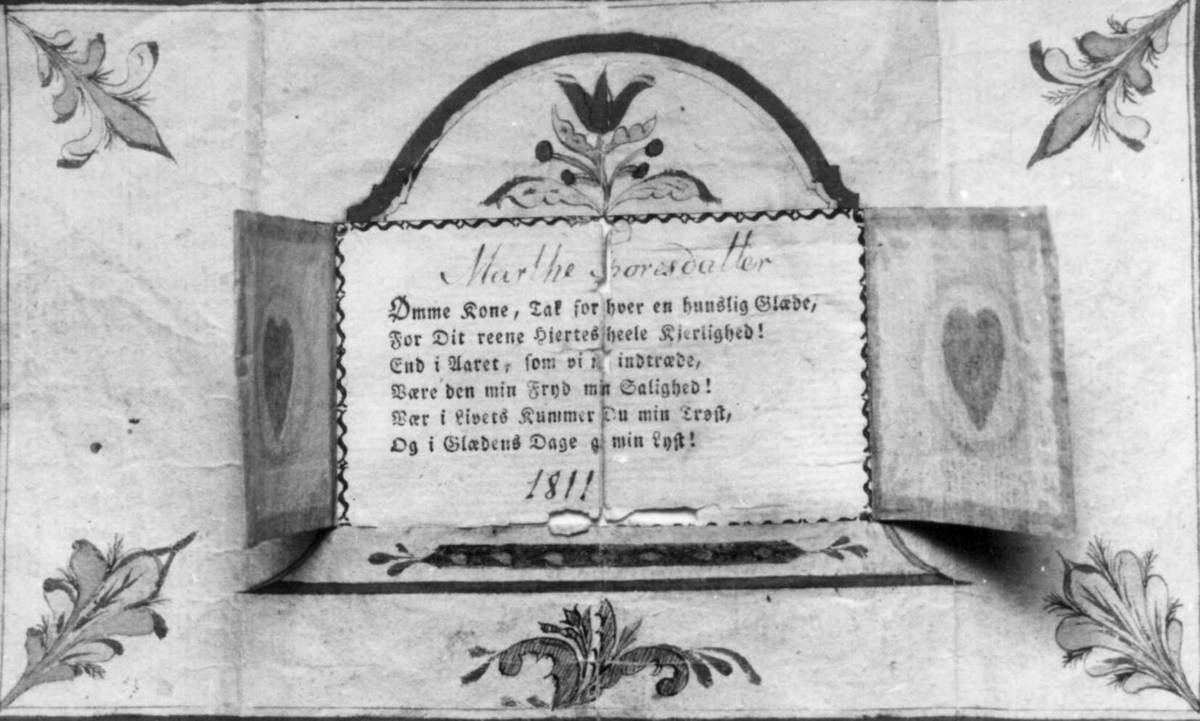 Marthe Thoresdatter
Ømme Kone, Tak for hver en huuslig Glæde,
For Dit reene Hjertes heele Kjerlighed!
End i Aaret, som vi indtræde,
Være den min Fryd min Salighed!
Vær i Livets Kummer Du min Trøst,
Og i Glædens Dage min Lyst!
1811